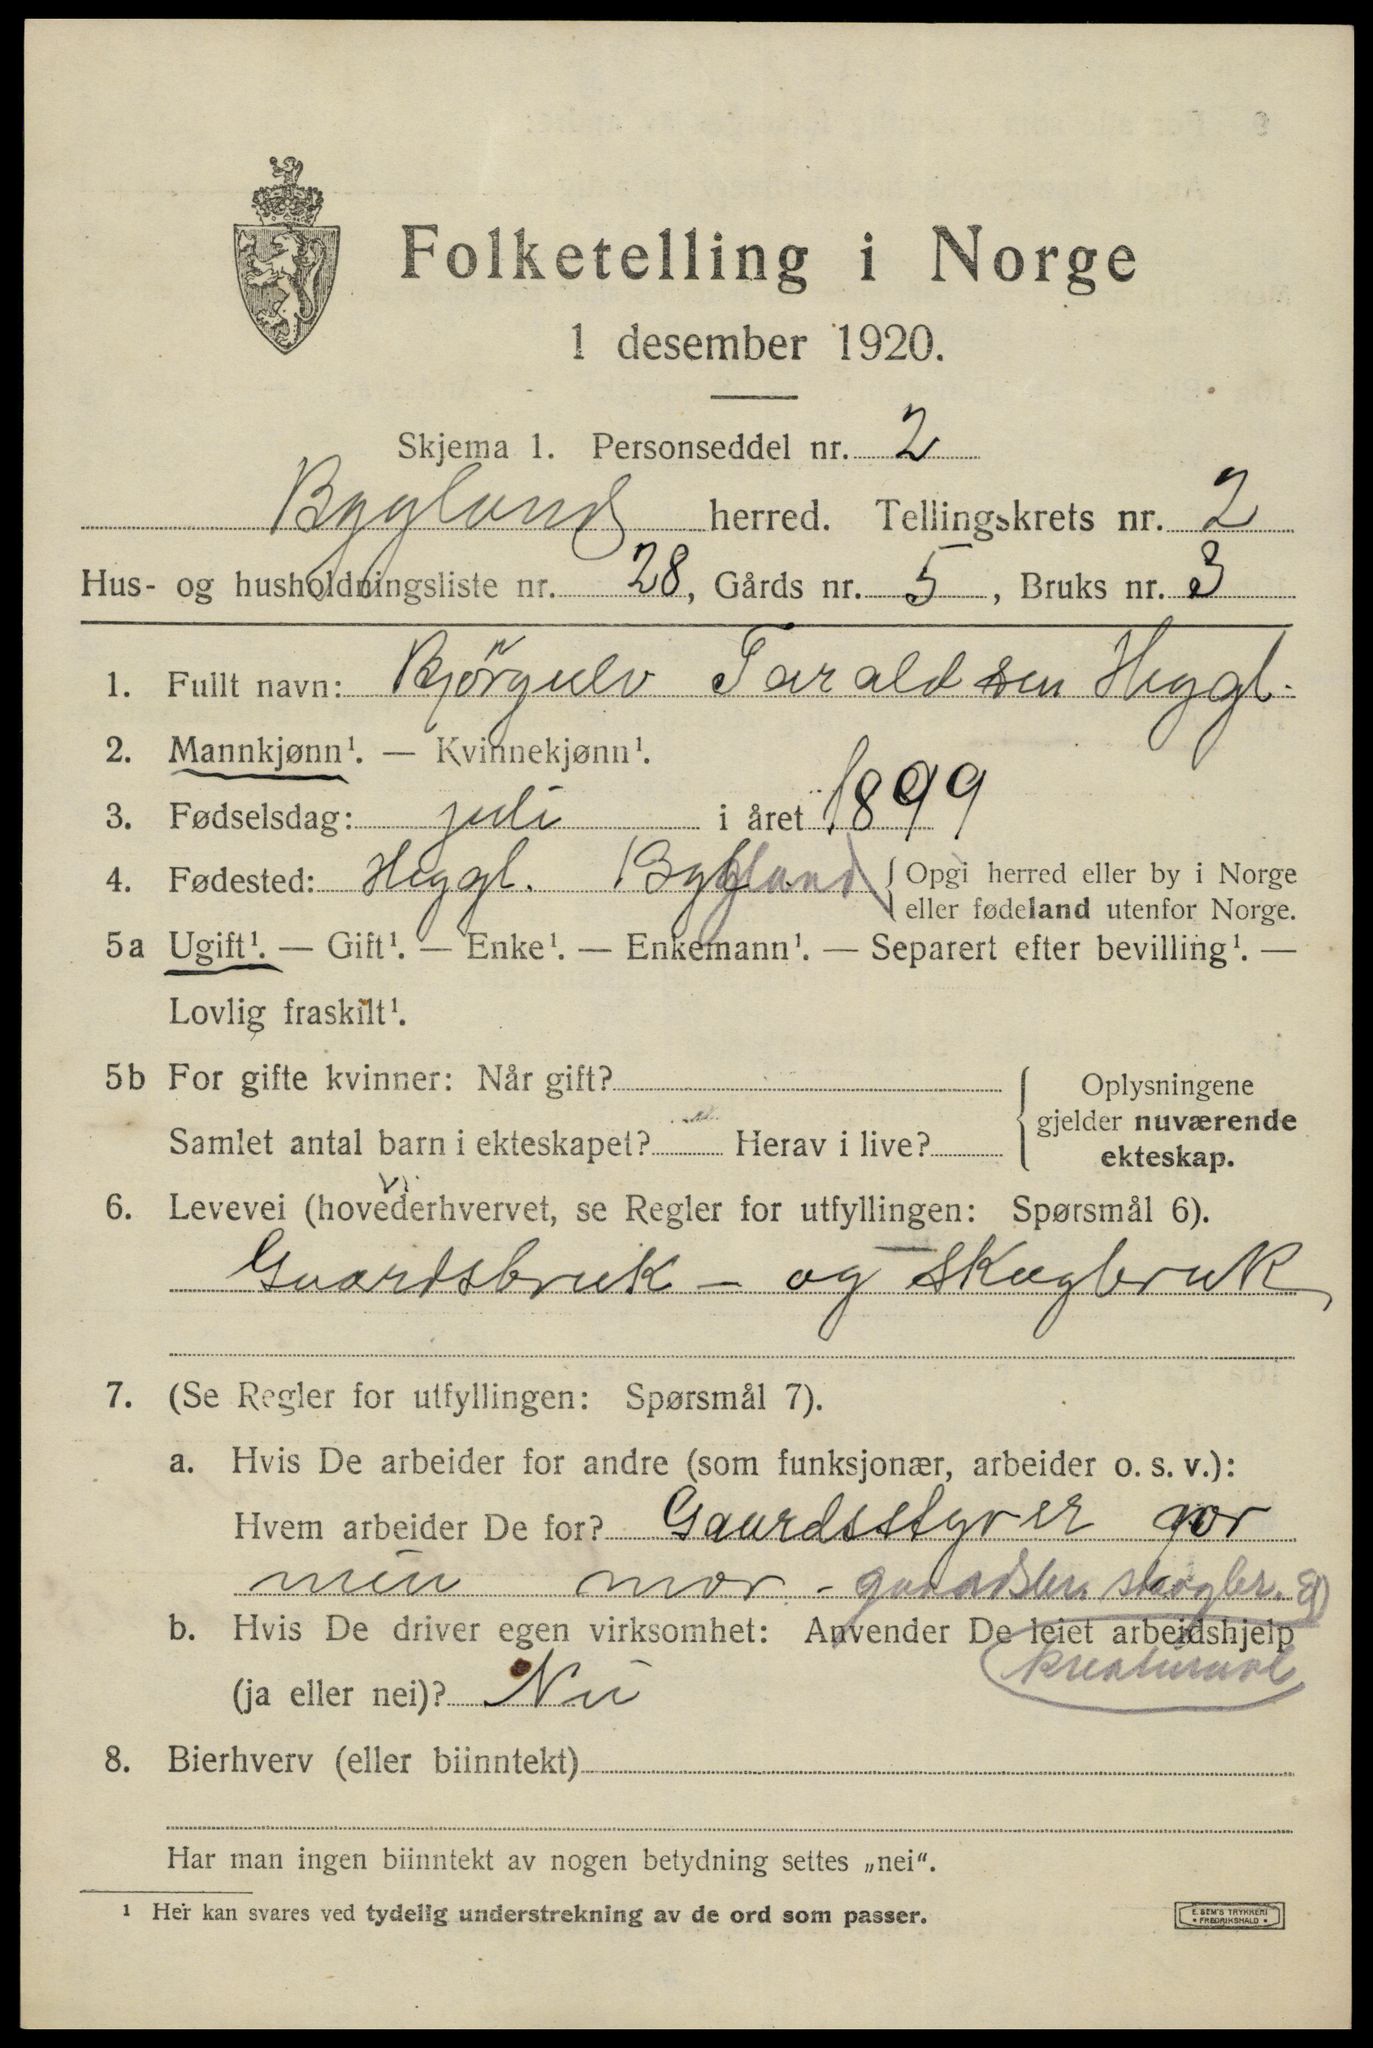 Folketelling i Norge
1 desember 1920.
Skjema 1. Personseddel nr. 2
Bygland herred. Tellingskrets nr. 2
Hus- og husholdningsliste nr. 28, Gårds nr. 5, Bruks nr. 3
1. Fullt navn: Bjørgulv Taraldsen Heggl.
2. Mannkjønn¹. — Kvinnekjønn¹.
3. Fødselsdag: juli i året 1899
4. Fødested: Heggl. Bygland { Opgi herred eller by i Norge
eller fødeland utenfor Norge.
5a Ugift¹. — Gift¹. — Enke¹. — Enkemann¹. — Separert efter bevilling¹. —
Lovlig fraskilt¹.
5b For gifte kvinner: Når gift? { Oplysningene
gjelder nuværende
Samlet antal barn i ekteskapet? Herav i live?
ekteskap.
6. Levevei (hovederhvervet, se Regler for utfyllingen: Spørsmål 6).
Gaardsbruk - og Skogbruk
7. (Se Regler for utfyllingen: Spørsmål 7).
a. Hvis De arbeider for andre (som funksjonær, arbeider o. s. v.):
Hvem arbeider De for? Gaardsstyrer for
min mor - gaardsbr. skogbr.
b. Hvis De driver egen virksomhet: Anvender De leiet arbeidshjelp
(ja eller nei)? Nei
8. Bierhverv (eller biinntekt)
Har man ingen biinntekt av nogen betydning settes „nei".
¹ Her kan svares ved tydelig understrekning av de ord som passer.
E. SEM'S TRYKKERI
• FREDRIKSHALD •